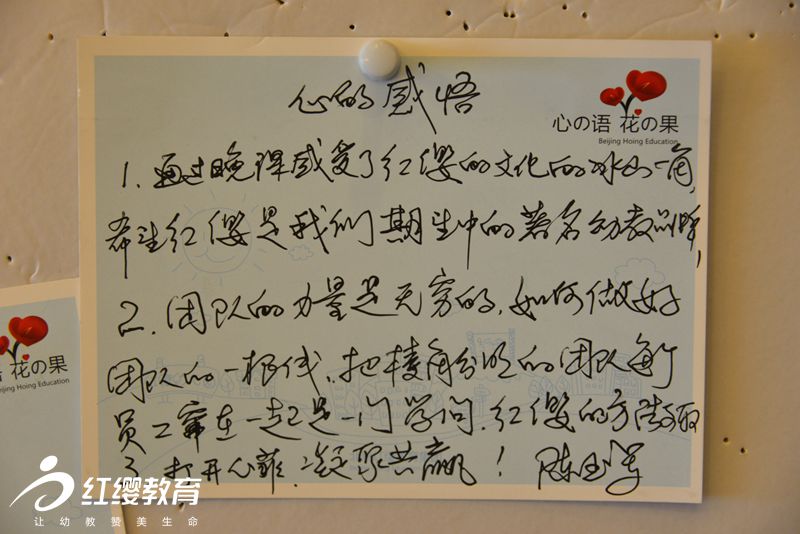 心的感悟
心の语 花の果
Beijing Hoing Education
1、通过晚课感受了红缨的文化的冰山一角,
希望红缨是我们期望中的著名幼教品牌,
2、团队的力量是无穷的,如何做好
团队的一根线,把棱角分明的团队每个
员工串在一起是一门学问,红缨的方法
3、打开心扉,凝聚共赢!
语 花の果
Beijing Hoing Education
红缨教育
让幼教赞美生命